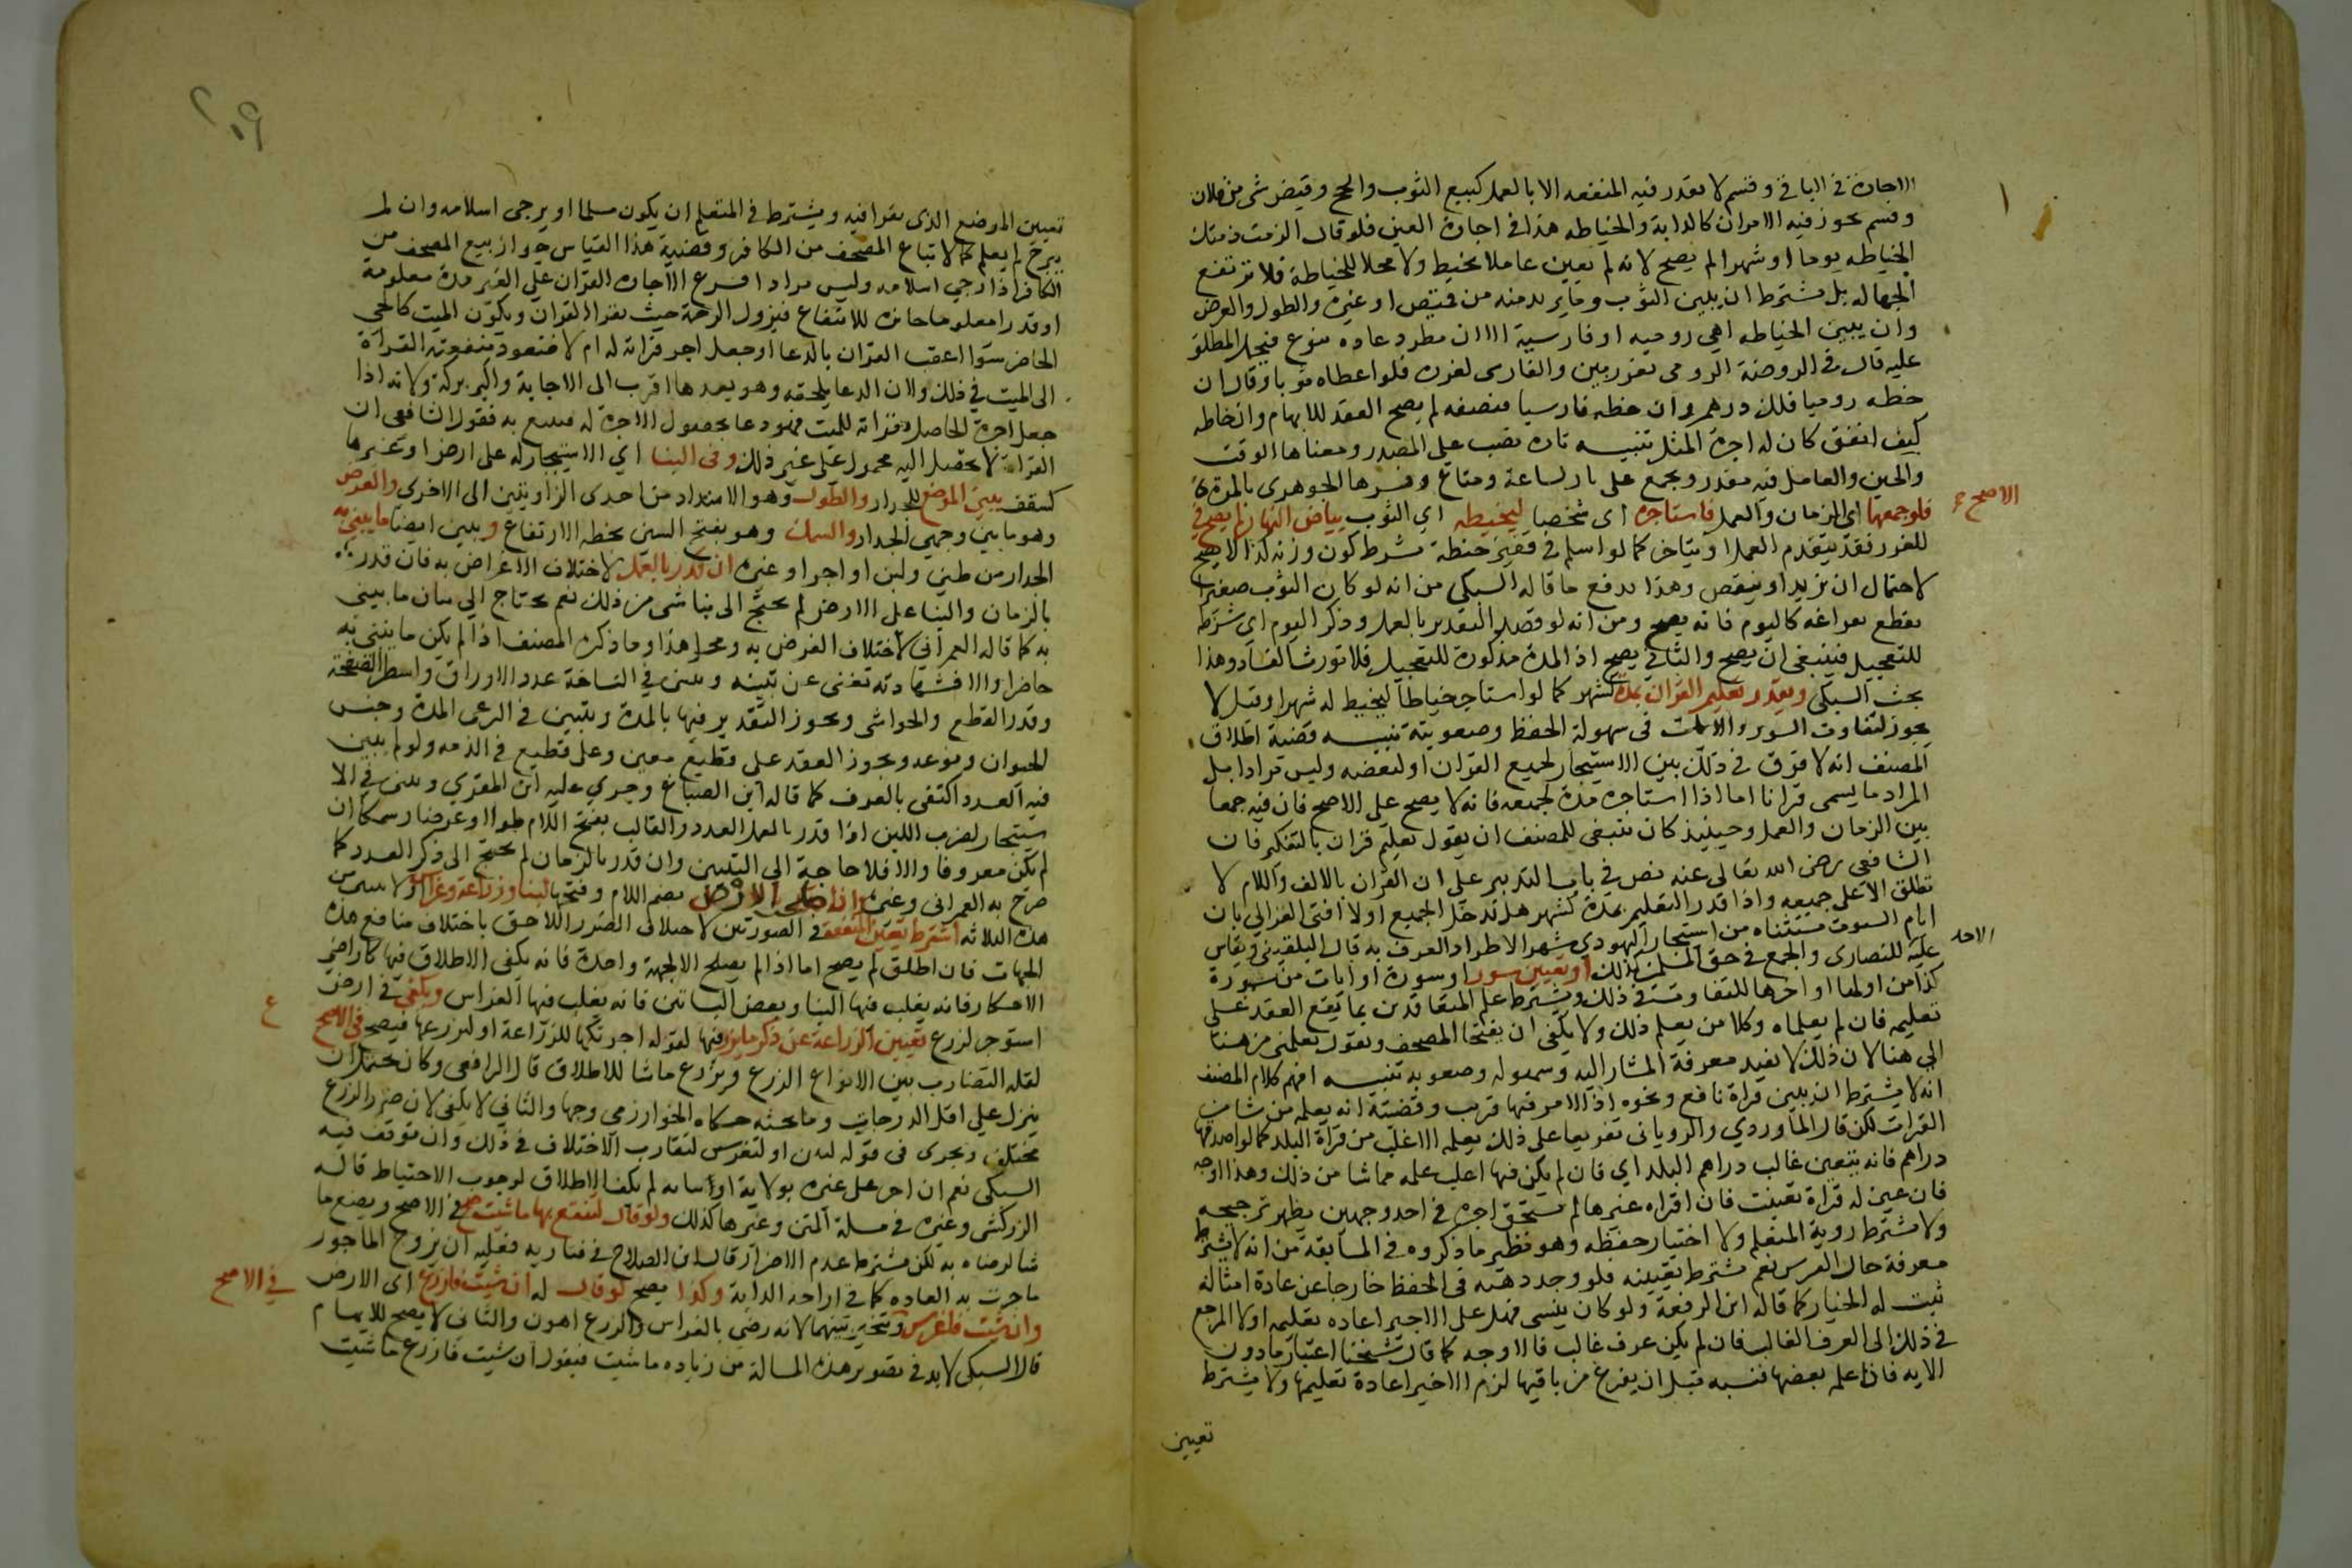 الاجارة في الباقي وقسم لا يقدر فيه المنفعه الا بالعمل كبيع الثوب والحج وقبض شى من فلان
وقسم يجوز فيه الامران كالدابة والخياطه هذا في اجارة العين فلو قال الزمت ذمتك
الخياطه يوما او شهرا لم يصح لانه لم يعين عاملا يخيط ولا محلا للخياطة فلا ترتفع
الجهاله بل يشترط ان يبين الثوب وما يريد منه من قميص او غيره والطول والعرض
وان يبين الخياطه اهي روميه او فارسية الا ان مطرد عاده بنوع فيحمل المطلق
عليه قال في الروضة الرومى بغرزتين والفارسى لغرزه فلو اعطاه ثوبا وقال ان
خطه روميا فلك درهم وان خطه فارسيا فنصفه لم يصح العقد للابهام وان خاطه
كيف اتفق كان له اجرة المثل تنبيه تاره نصب على المصدر ومعناها الوقت
والحين والعامل فيه مقدر ويجمع على تارات كساعة وساع وفسرها الجوهرى بالمرة
فلو جمعهما اى الزمان والعمل فاستاجره اى شخصا ليخيطه اي الثوب بياض النهار لم يصح في
للغرر فقد يتقدم العمل او يتاخر كما لو اسلم في قفيز حنطة بشرط كون وزنه كذا لا يصح
الاصح ع
لاحتمال ان يزيد او ينقص وهذا يدفع ما قاله السبكي من انه لو كان الثوب صغيرا
يقطع بفراغه كاليوم فانه يصح ومن انه لو قصد التقدير بالعمل وذكر اليوم اى شرطه
للتعجيل فينبغي ان يصح والثاني يصح اذ المدة مذكورة للتعجيل فلا تورث الفساد وهذا
بحث السبكى ويقدر تعليم القران بمدة كشهر كما لو استاجر خياطا ليخيط له شهرا وقيل لا
يجوز لتفاوت السور والايات في سهولة الحفظ وصعوبته تنبيه قضية اطلاق
المصنف انه لا فرق في ذلك بين الاستيجار لجميع القران او لبعضه وليس مرادا بل
المراد ما يسمى قرانا اما اذا استاجره مدة لجميعه فانه لا يصح على الاصح فان فيه جمعا
بين الزمان والعمل وحينيذ كان ينبغى للمصنف ان يقول تعليم قران بالتنكير فان
الشافعى رضى الله تعالى عنه نص في باب التدبير على ان القران بالالف واللام لا
تطلق الا على جميعه واذا قدر التعليم بمدة كشهر هل تدخل الجميع اولا افتى الغزالى بان
ايام السبوت مستثناه من استيجار اليهودي شهرا لاطراد العرف به قال البلقينى ويقاس
الاحد
عليه للنصارى والجمع في حق المسلمين كذلك او بتعيين سور او سورة او ايات من سورة
كذا من اولها او اخرها للتفاوت في ذلك ويشترط علم المتعاقدين بما يقع العقد على
تعليمه فان لم يعلماه وكلا من يعلم ذلك ولا يكفى ان يفتحا المصحف ويقول تعلمنى من هنا
الى هنا لان ذلك لا يفيد معرفة المشار اليه وسهوله وصعوبه تنبيه افهم كلام المصنف
انه لا يشترط ان يبين قراة نافع ونحوه اذ الامر فيها قريب وقضيته انه يعلمه من شا من
القرات لكن قال الماوردي والرويانى تفريعا على ذلك يعلمه الاغلب من قراة البلد كما لو اصدقها
دراهم فانه يتعين غالب دراهم البلد اي فان لم يكن فيها اغلب علمه مما شا من ذلك وهذا اوجه
فان عين له قراة تعينت فان اقراه غيرها لم يستحق اجرة في احد وجهين يظهر ترجيحه
ولا يشترط روية المتعلم ولا اختبار حفظه وهو نظير ما ذكروه في المسابقة من انه لا يشترط
معرفة حال الفرس نعم يشترط تعيينه فلو وجد ذهنه في الحفظ خارجا عن عادة امثاله
ثبت له الخيار كما قاله ابن الرفعة ولو كان ينسى فهل على الاجير اعاده تعليمه اولا المرجع
في ذلك الى العرف الغالب فان لم يكن عرف غالب فالاوجه كما قال شيخنا اعتبار ما دون
الايه فاذا علمه بعضها فنسيه قبل ان يفرغ من باقيها لزم الاجير اعادة تعليمها ولا يشترط
تعيين
٢٠٩
تعيين الموضع الذى يقرا فيه ويشترط في المتعلم ان يكون مسلما او يرجى اسلامه وان لم
يرج لم يعلم كما لا يباع المصحف من الكافر وقضية هذا القياس جواز بيع المصحف من
الكافر اذا رجي اسلامه وليس مرادا فرع الاجاره القران على القبر مدة معلومة
او قدرا معلوما جائزه للانتفاع بنزول الرحمة حيث يقرا القران ويكون الميت كالحى
الحاضر سوا اعقب القران بالدعا او جعل اجر قراته له ام لا فتعود منفعته القراة
الى الميت في ذلك ولان الدعا يلحقه وهو بعدها اقرب الى الاجابة واكثر بركة ولانه اذا
جعل اجرة الحاصل بقراته للميت فهو دعا بحصول الاجرة له فينتفع به فقول الشافعى ان
القراة لا تحصل اليه محمول على غير ذلك وفى البنا اي الاستيجار له على ارض او غيرها
كسقف يبين الموضع للجدار والطول وهو الامتداد من احدى الزاويتين الى الاخرى والعرض
وهو ما بين وجهى الجدار والسمك وهو بفتح السين بخطه الارتفاع ويبين ايضا ما يبنى به
الجدار من طين ولبن او اجر او غيره ان قدر بالعمل لاختلاف الاغراض به فان قدر
بالزمان والبنا على الارض لم يحتج الى بنا شى من ذلك نعم يحتاج الى بيان ما يبنى
به كما قاله العمرانى لاختلاف الغرض به ومحل هذا وما ذكره المصنف اذا لم يكن ما يبنى به
حاضرا والا فمشاهدته تغنى عن تبينه ويبين في النساخة عدد الاوراق واسطر الصفحة
وقدر القطع والحواشى ويجوز التقدير فيها بالمدة ويتبين في الرعى المدة وجنس
الحيوان ونوعه ويجوز العقد على قطيع معين وعلى قطيع في الذمه ولو لم يبين
فيه العدد اكتفى بالعرف كما قاله ابن الصباغ وجري عليه ابن المقري ويبين في الا
ستيجار لضرب اللبن اذا قدر بالعمل العدد والقالب بفتح اللام طولا وعرضا وسمكا ان
لم يكن معروفا والا فلا حاجة الى التبيين وان قدر بالزمان لم يحتج الى ذكر العدد كما
صرح به العمرانى وغيره واذا صلحت الارض بضم اللام وفتحها لبنا وزراعة وغراس
هذه الثلاثه اشترط تعيين المنفعة في الصورتين لاختلاف الضرر اللاحق باختلاف منافع هذه
الجهات فان اطلق لم يصح اما اذا لم يصلح الا لجهة واحدة فانه يكفى الاطلاق فيها كاراضى
الاحكار فانه يغلب فيها البنا وبعض البساتين فانه يغلب فيها الغراس ويكفى في ارض
استوجر لزرع تعيين الزراعة عن ذكر ما يزرع فيها لقوله اجرتكها للزراعة او لتزرعها فيصح في الاصح
ع
لقله التضارب بين الانواع الزرع ويزرع ما شا للاطلاق قال الرافعى وكان يحتمل ان
ينزل على اقل الدرجات وما بحثه حكاه الخوارزمى وجها والثانى لا يكفى لان ضرر الزرع
مختلف ويجرى في قوله لتبن او لتغرس لتقارب الاختلاف في ذلك وان توقف فيه
السبكى نعم ان اجر على غيره بولاية او نيابه لم يكف الاطلاق لوجوب الاحتياط قاله
الزركشى وغيره في مسلة المتن وغيرها كذلك ولو قال لتنتفع بها ما شيت صح في الاصح ويصنع ما
شا لرضاه به لكن يشترط عدم الاضرار قال ابن الصلاح في فتاويه فعليه ان يروح الماجور
ما جرت به العاده كما في اراحه الدابة وكذا يصح لو قال له ان شيت فازرع اى الارض
في الاصح
وان شيت فاغرس ويتخير بينهما لانه رضى بالغراس والزرع اهون والثانى لا يصح للابهام
قال السبكى لا بد في تصوير هذه المسالة من زياده ما شيت فيقول ان شيت فازرع ما شيت